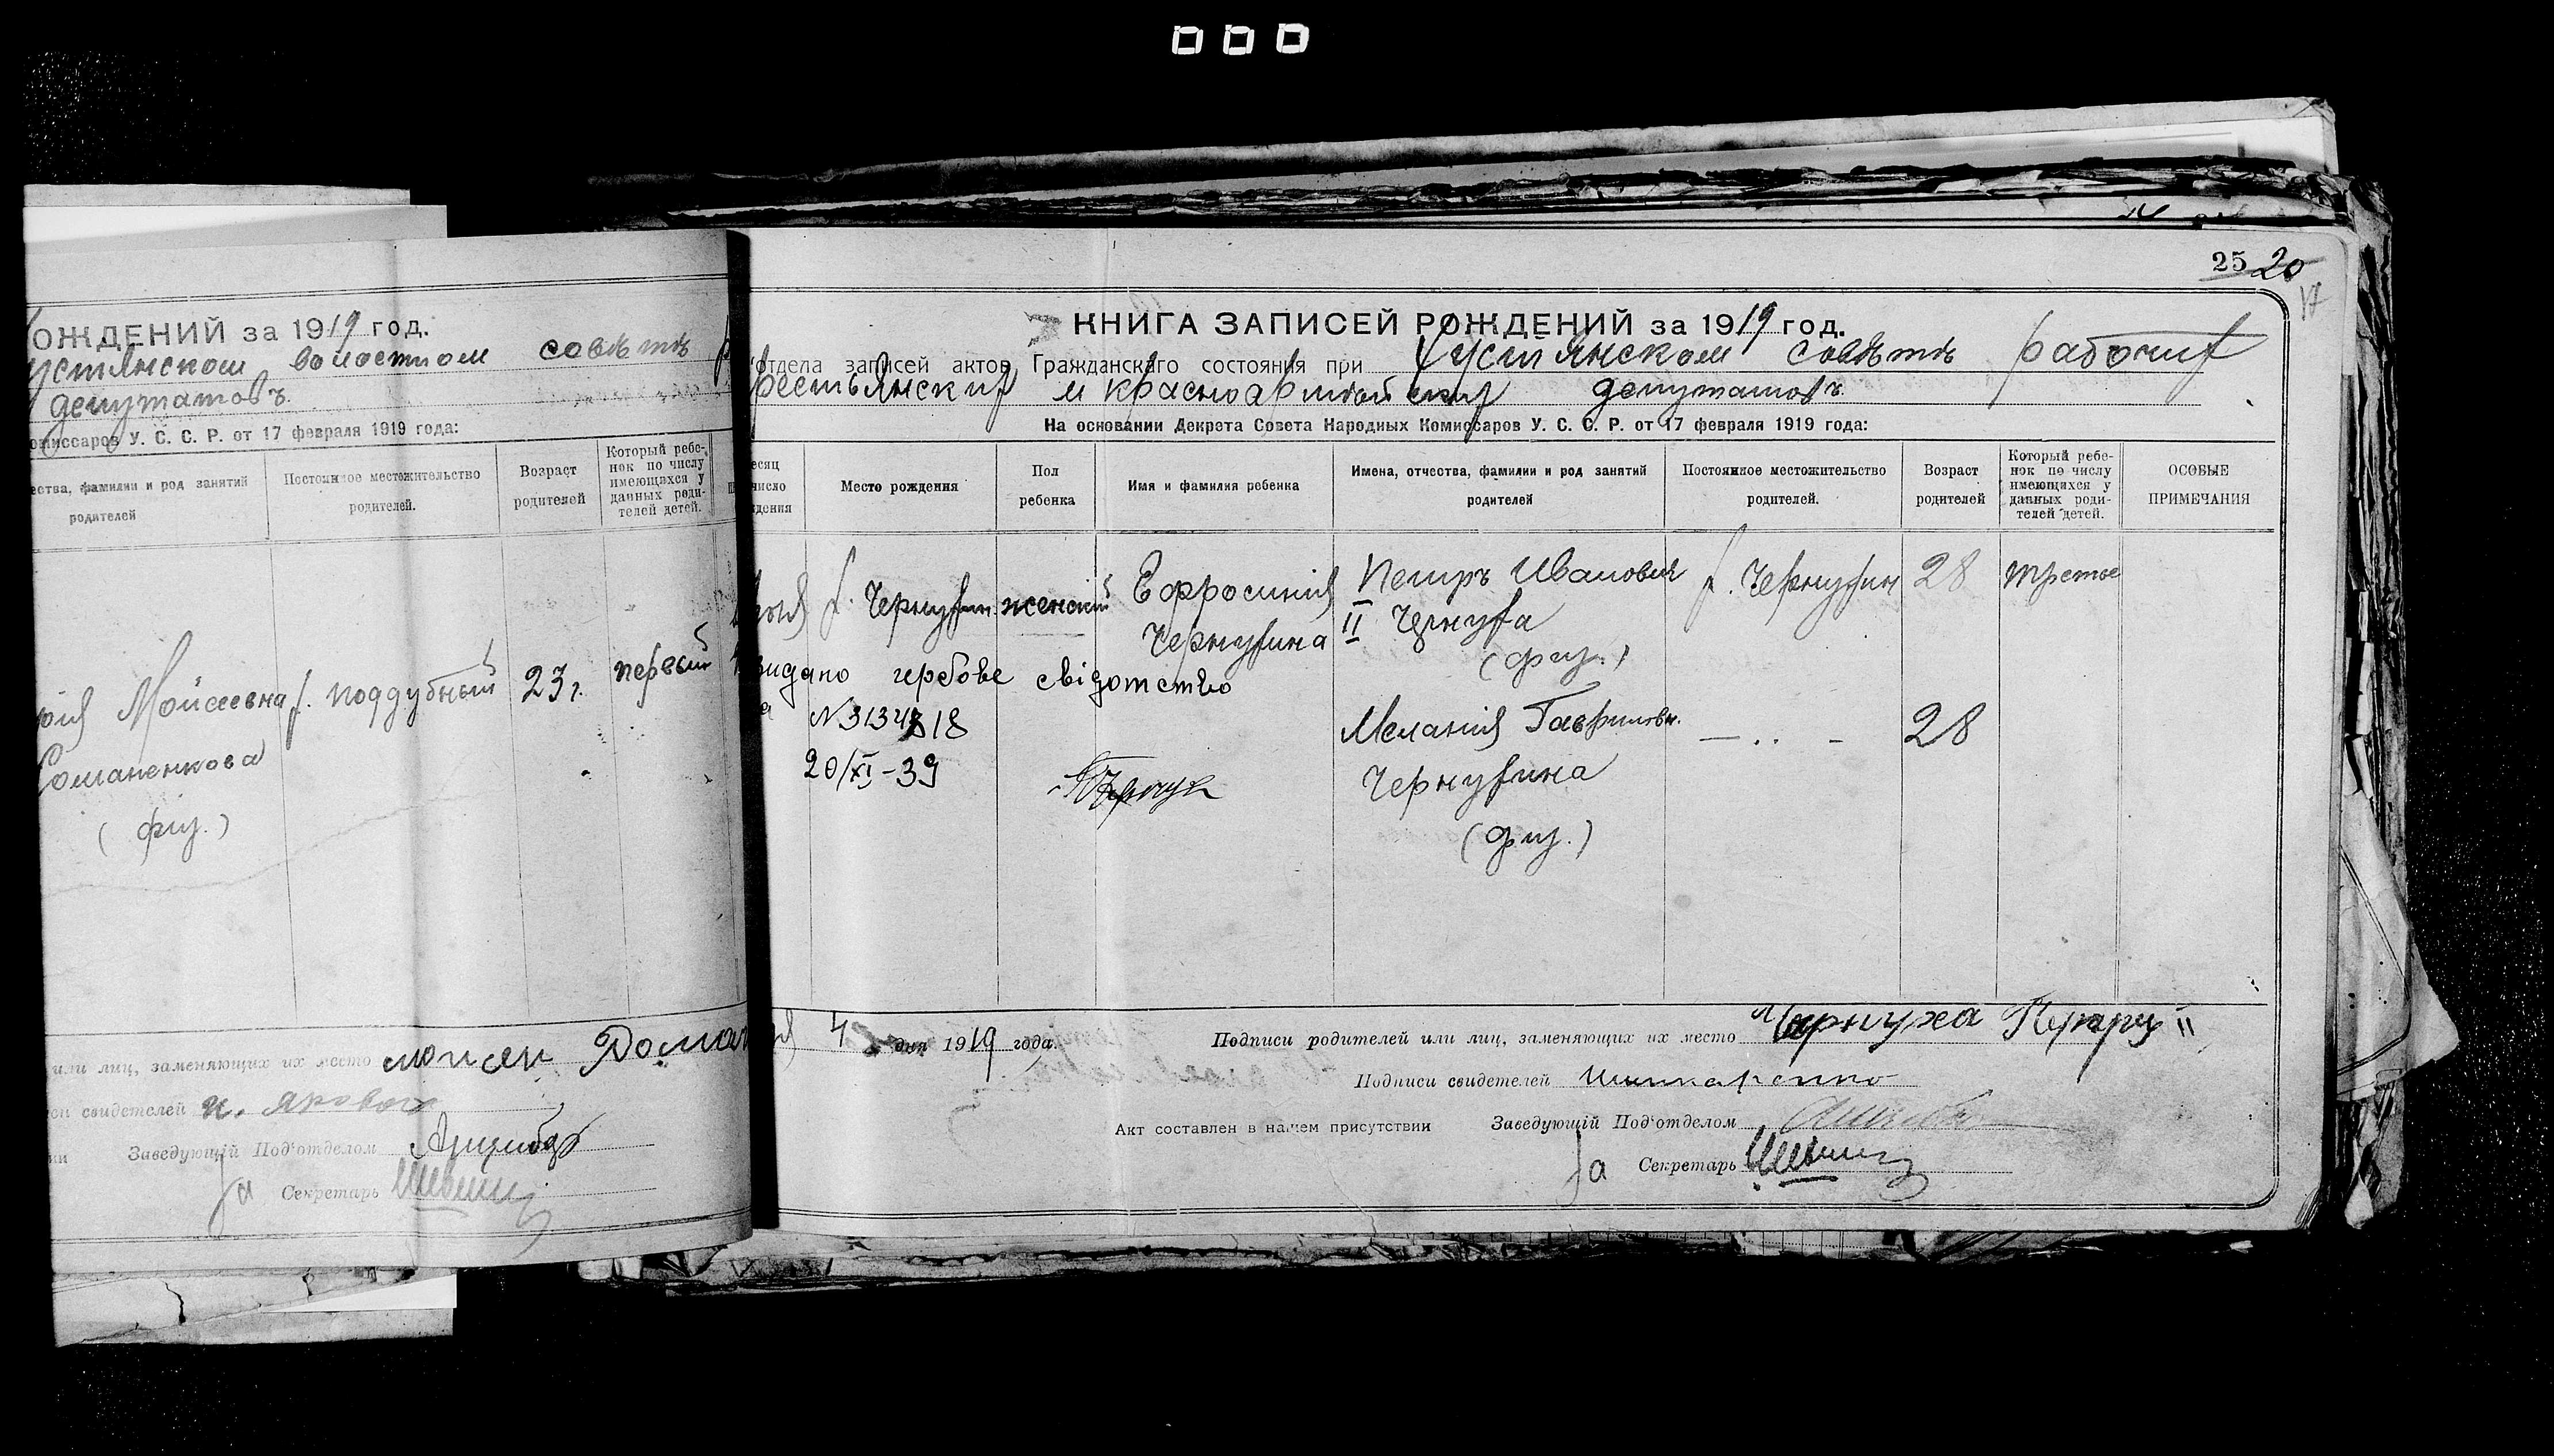 ОЖДЕНИЙ за 1919 год.
устянском волостном совѣтѣ
депутатовъ.
омиссаров У. С. С. Р. от 17 февраля 1919 года:
ества, фамилии и род занятий родителей
Постоянное местожительство родителей.
Возраст родителей
Который ребенок по числу имеющихся у данных родителей детей.
Мойсеевна
х. Поддубный
23 г.
первый
Романенкова
(физ.)
или лиц, заменяющих их место
си свидетелей
Заведующій Под'отделом
За Секретарь
25 20
17
КНИГА ЗАПИСЕЙ РОЖДЕНИЙ за 1919 год.
отдела записей актов Гражданскаго состояния при Хустянском совѣтѣ рабочих
рестьянских и красноармейских депутатовъ.
На основании Декрета Совета Народных Комиссаров У. С. С. Р. от 17 февраля 1919 года:
есяц
число
ждения
Место рождения
Пол ребенка
Имя и фамилия ребенка
Имена, отчества, фамилии и род занятий родителей
Постоянное местожительство родителей.
Возраст родителей
Который ребенок по числу имеющихся у данных родителей детей.
ОСОБЫЕ ПРИМЕЧАНИЯ
х. Чернухин
женский
Ефросинія
Чернухина
Петръ Иванович
II Чернуха
(физ.)
х. Чернухин
28
третье
видано гербове свідотство
20/XI-39
Меланія Гавриловн.
Чернухина
(физ.)
28
4 дня 1919 года.
Подписи родителей или лиц, заменяющих их место Чернуха Петръ II
Подписи свидетелей Шинкаренко
Акт составлен в нашем присутствии
Заведующій Под'отделом
За Секретарь